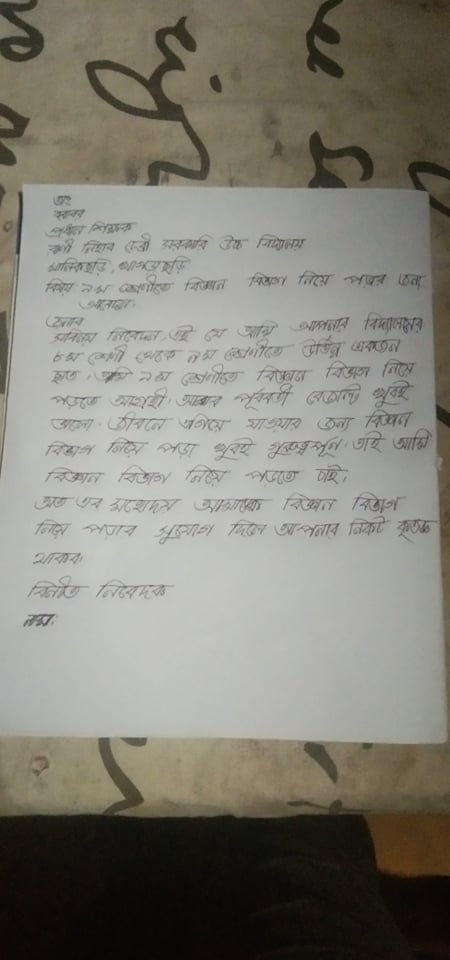 তাং
বরাবর
প্রধান শিক্ষক
রানী নিহার দেবী সরকারি উচ্চ বিদ্যালয়
মানিকছড়ি, খাগড়াছড়ি
বিষয় ৯ম শ্রেণীতে বিজ্ঞান বিভাগ নিয়ে পড়ার জন্য
আবেদন।
জনাব
সবিনয় নিবেদন এই যে আমি আপনার বিদ্যালয়ের
৮ম শ্রেণী থেকে ৯ম শ্রেণীতে উর্ত্তিন্ন একজন
ছাত্র। আমি ৯ম শ্রেণীতে বিজ্ঞান বিভাগ নিয়ে
পড়তে আগ্রহী। আমার পূর্ববর্তী রেজাল্ট খুবই
ভালো। জীবনে এগিয়ে যাওয়ার জন্য বিজ্ঞান
বিভাগ নিয়ে পড়া খুবই গুরুত্বপূন। তাই আমি
বিজ্ঞান বিভাগ নিয়ে পড়তে চাই।
অত এব মহোদয় আমাকে বিজ্ঞান বিভাগ
নিয়ে পড়ার সুযোগ দিলে আপনার নিকট কৃতজ্ঞ
থাকব।
বিনীত নিবেদক
নাম: